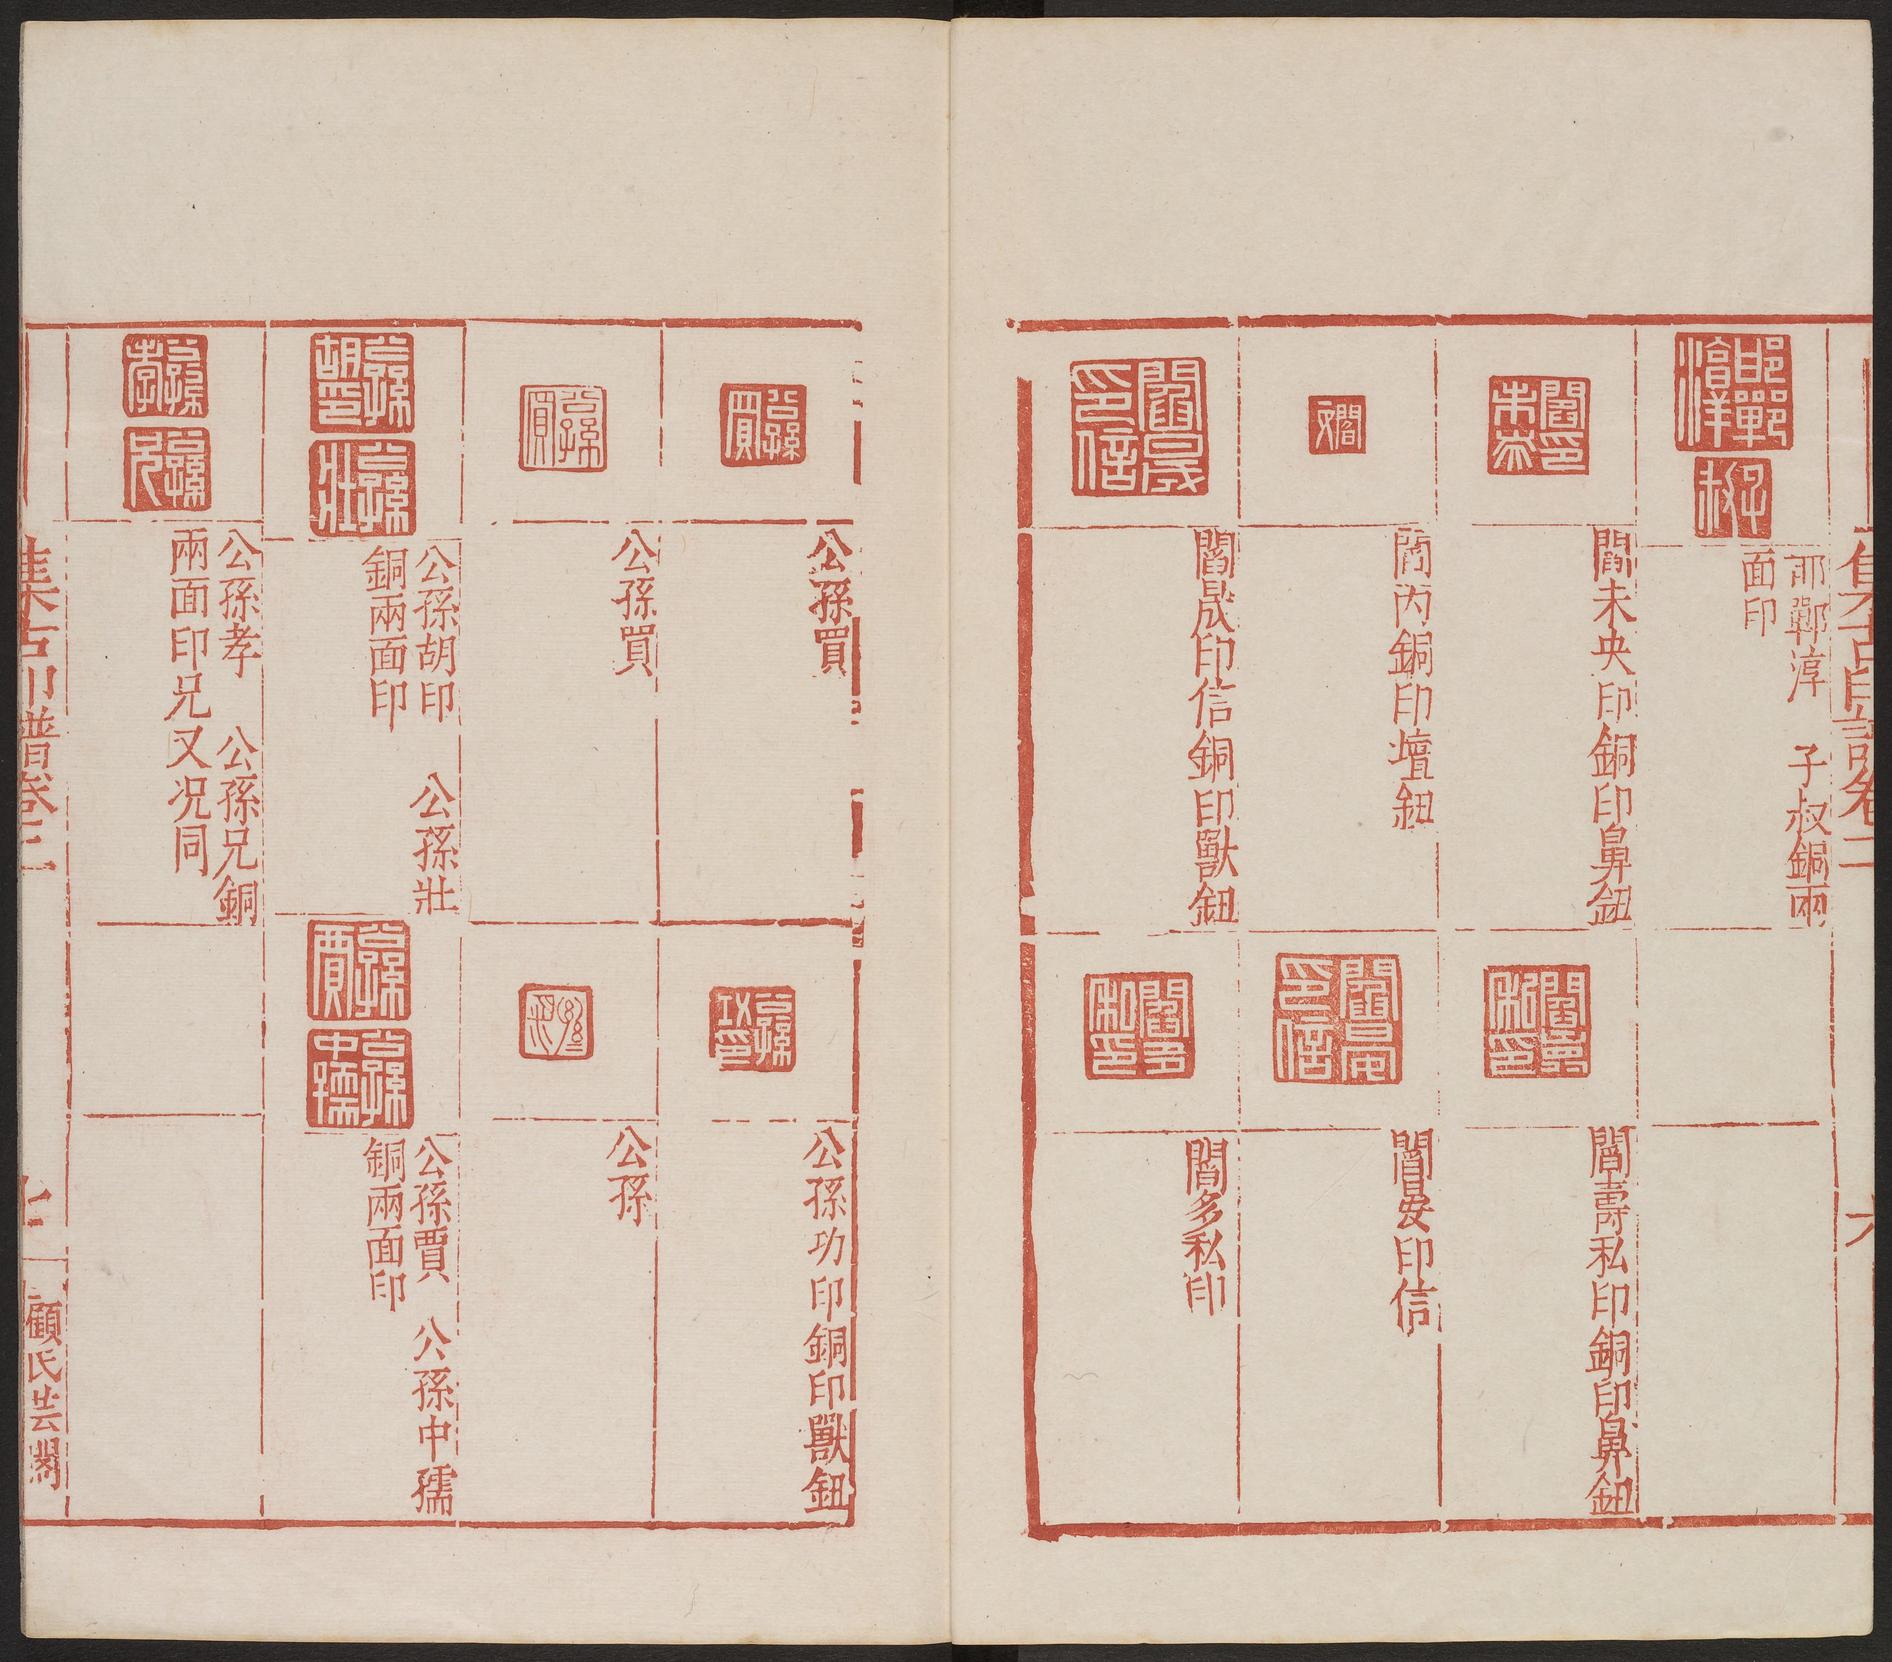 集古印譜卷二
六
邯鄲淳　子叔銅兩
面印
閻未央印銅印鼻鈕
閻壽私印銅印鼻鈕
閻丙銅印壇鈕
閻晏印信
閻晟印信銅印獸鈕
閻多私印
公孫買
公孫功印銅印獸鈕
公孫買
公孫
公孫胡印　公孫壯
銅兩面印
公孫賈　公孫中孺
銅兩面印
公孫孝　公孫兄銅
兩面印兄又况同
集古印譜卷二
七
顧氏芸閣